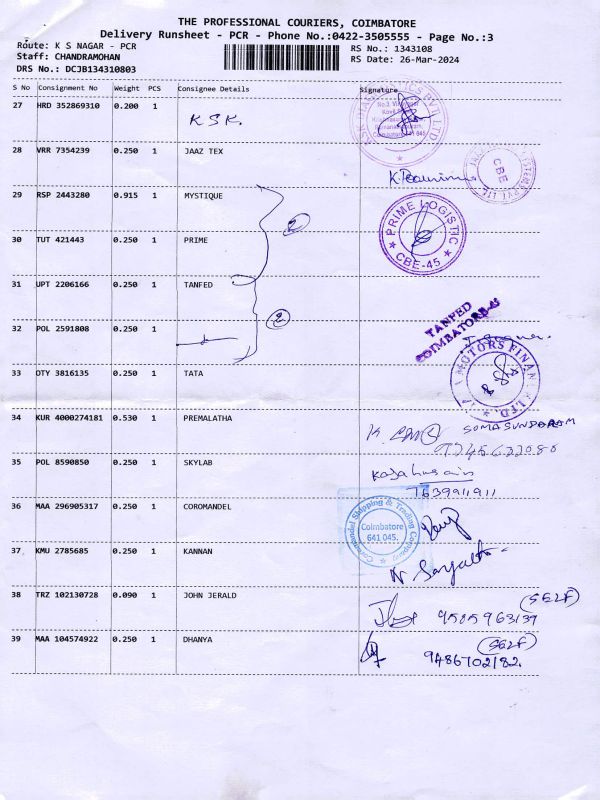 THE PROFESSIONAL COURIERS, COIMBATORE
Delivery Runsheet - PCR - Phone No.:0422-3505555 - Page No.:3
Route: K S NAGAR - PCR
RS No.: 1343108
Staff: CHANDRAMOHAN
RS Date: 26-Mar-2024
DRS No.: DCJB134310803
S No Consignment No Weight PCS Consignee Details Signature
27 HRD 352869310 0.200 1
K.S.K.
28 VRR 7354239 0.250 1 JAAZ TEX
CBE
29 RSP 2443280 0.915 1 MYSTIQUE
PRIME LOGISTIC
CBE-45
30 TUT 421443 0.250 1 PRIME
31 UPT 2206166 0.250 1 TANFED
TANFED
COIMBATORE-45
32 POL 2591808 0.250 1
2
33 OTY 3816135 0.250 1 TATA
MOTORS FINAN LTD.
34 KUR 4000274181 0.530 1 PREMALATHA
SOMASUNDARAM
35 POL 8590850 0.250 1 SKYLAB
Kajahusain
7639911911
36 MAA 296905317 0.250 1 COROMANDEL
Coromandel Shipping & Trading Company
Coimbatore
641 045.
37 KMU 2785685 0.250 1 KANNAN
38 TRZ 102130728 0.090 1 JOHN JERALD
(SELF)
9505963139
39 MAA 104574922 0.250 1 DHANYA
(SELF)
9486702182.